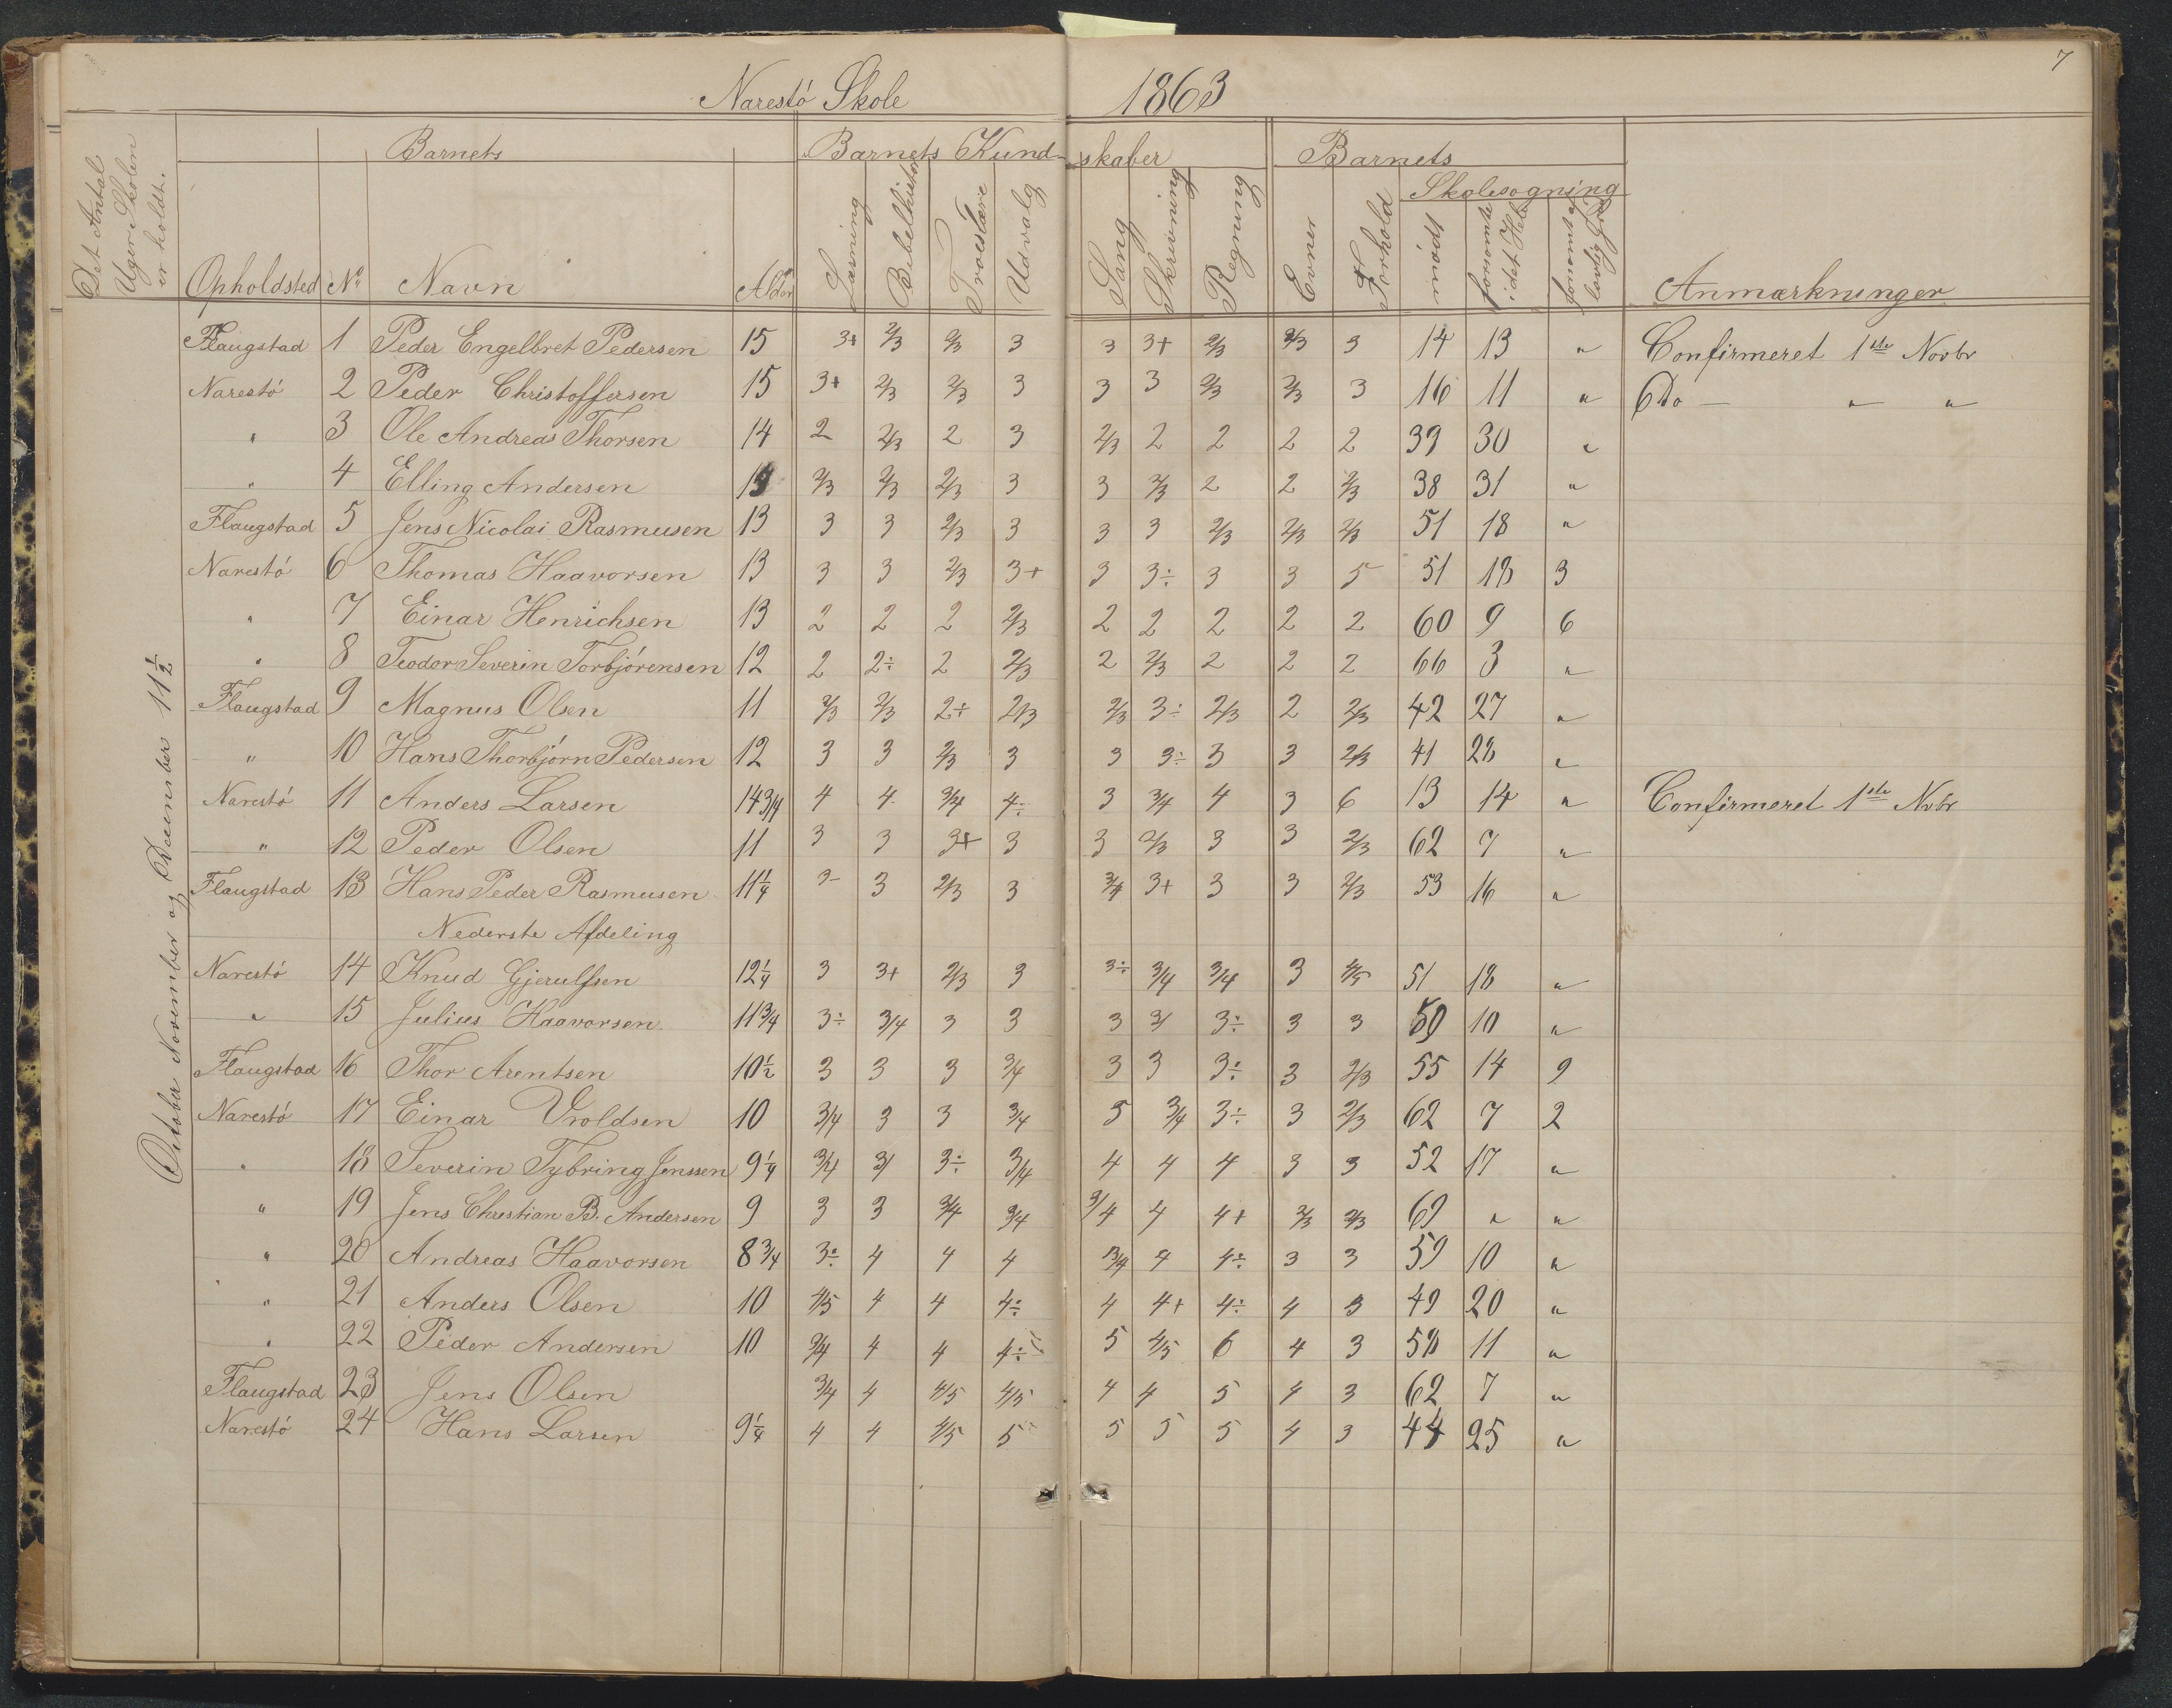 7
Narestö Skole 1863
Det Antal Uger Skolen er holdt.
Barnets Barnets Kundskaber Barnets
Skolesøgning
Opholdsted No Navn Alder Læsning Bibelhistor Troeslære Udvalg Sang Skrivning Regning Evner Forhold mødt forsømt i det Hele forsømt af lovlig Grund Anmærkninger
October November og December 11½
Flaugstad 1 Peder Engelbret Pedersen 15 3+ 2/3 2/3 3 3 3+ 2/3 2/3 3 14 13 " Confirmeret 1ste Novbr
Narestö 2 Peder Christoffersen 15 3+ 2/3 2/3 3 3 3 2/3 2/3 3 16 11 " Do — " "
" 3 Ole Andreas Thorsen 14 2 2/3 2 3 2/3 2 2 2 2 39 30 "
" 4 Elling Andersen 2/3 2/3 2/3 3 3 2/3 2 2 2/3 38 31 "
Flaugstad 5 Jens Nicolai Rasmusen 13 3 3 2/3 3 3 3 2/3 2/3 2/3 51 18 "
Narestö 6 Thomas Haavorsen 13 3 3 2/3 3+ 3 3÷ 3 3 5 51 18 3
" 7 Einar Henrichsen 13 2 2 2 2/3 2 2 2 2 2 60 9 6
" 8 Teodor Severin Torbjörensen 12 2 2÷ 2 2/3 2 2/3 2 2 2 66 3 "
Flaugstad 9 Magnus Olsen 11 2/3 2/3 2÷ 2/3 2/3 3÷ 2/3 2 2/3 42 27 "
" 10 Hans Thorbjörn Pedersen 12 3 3 2/3 3 3 3÷ 3 3 2/3 41 28 "
Narestö 11 Anders Larsen 14 3/4 4 4 3/4 4÷ 3 3/4 4 3 6 13 14 " Confirmeret 1ste Novbr
" 12 Peder Olsen 11 3 3 3+ 3 3 2/3 3 3 2/3 62 7 "
Flaugstad 13 Hans Peder Rasmusen 11¼ 3- 3 2/3 3 3/4 3+ 3 3 2/3 53 16 "
Nederste Afdeling
Narestö 14 Knud Gjerulfsen 12¼ 3 3+ 2/3 3 3÷ 3/4 3/4 3 4/5 51 18 "
" 15 Julius Haavorsen 11 3/4 3÷ 3/4 3 3 3 3/ 3÷ 3 3 59 10 "
Flaugstad 16 Thor Arentsen 10½ 3 3 3 3/4 3 3 3÷ 3 2/3 55 14 9
Narestö 17 Einar Vroldsen 10 3/4 3 3 3/4 5 3/4 3÷ 3 2/3 62 7 2
" 18 Severin Tybring Jenssen 9¼ 3/4 3/ 3÷ 3/4 4 4 4 3 3 52 17 "
" 19 Jens Christian B. Andersen 9 3 3 3/4 3/4 3/4 4 4+ 2/3 2/3 69 " "
" 20 Andreas Haavorsen 8 3/4 3÷ 4 4 4 3/4 4 4÷ 3 3 59 10 "
" 21 Anders Olsen 10 4/5 4 4 4÷ 4 4+ 4÷ 4 3 49 20 "
" 22 Peder Andersen 10 3/4 4 4 4÷ 5 4/5 6 4 3 58 11 "
Flaugstad 23 Jens Olsen 3/4 4 4/5 4/5 4 4 5 4 3 62 7 "
Narestö 24 Hans Larsen 9¼ 4 4 4/5 5 5 5 5 4 3 44 25 "